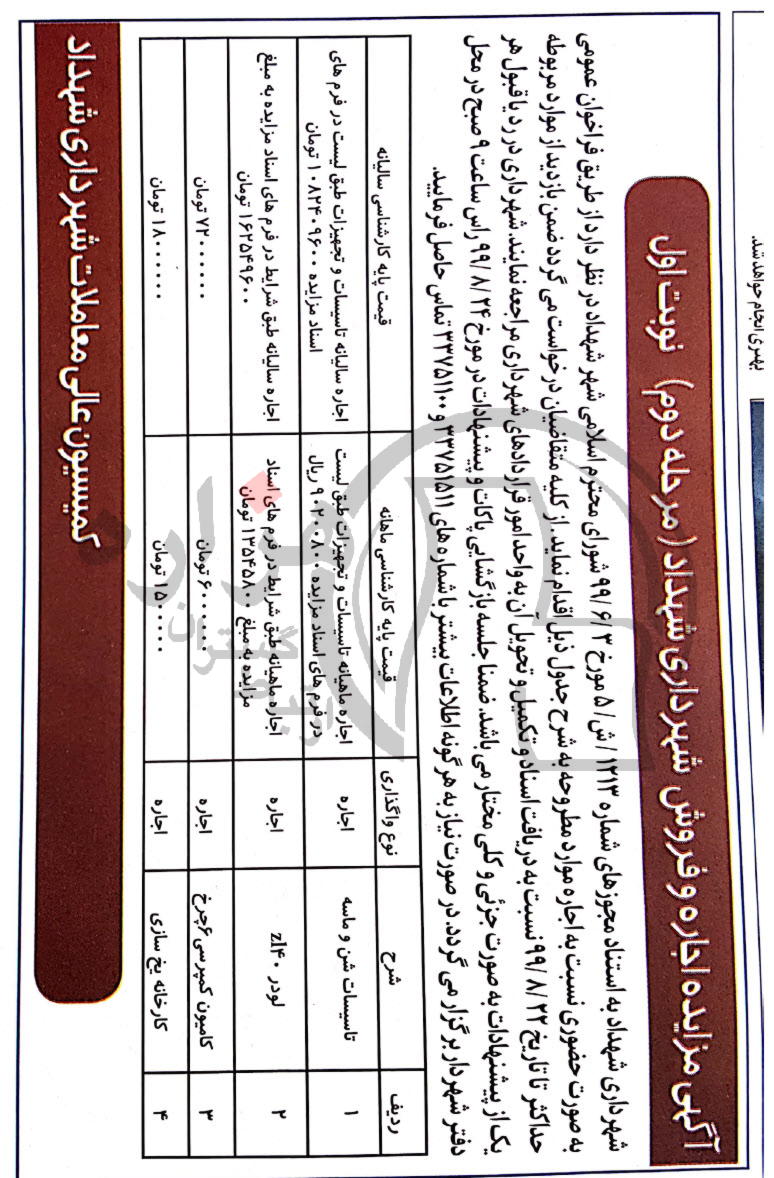 بهتری انجام خواهد شد.
آگهی مزایده اجاره و فروش شهرداری شهداد (مرحله دوم) نوبت اول
شهرداری شهداد به استناد مجوزهای شماره ۱۲۱۳ / ش/ ۵ مورخ ۳ /۶ /۹۹ شورای محترم اسلامی شهر شهداد در نظر دارد از طریق فراخوان عمومی
به صورت حضوری نسبت به اجاره موارد مطروحه به شرح جدول ذیل اقدام نماید. از کلیه متقاضیان درخواست می گردد ضمن بازدید از موارد مربوطه
حداکثر تا تاریخ ۲۲ /۸ /۹۹ نسبت به دریافت اسناد و تکمیل و تحویل آن به واحد امور قراردادهای شهرداری مراجعه نمایند. شهرداری در رد یا قبول هر
یک از پیشنهادات به صورت جزئی و کلی مختار می باشد. ضمنا جلسه بازگشایی پاکات و پیشنهادات در مورخ ۲۴ /۸ /۹۹ راس ساعت ۹ صبح در محل
دفتر شهردار برگزار می گردد. در صورت نیاز به هرگونه اطلاعات بیشتر با شماره های ۳۳۷۵۱۵۱۱ و ۳۳۷۵۱۱۰۰ تماس حاصل فرمایید.
ردیف شرح نوع واگذاری قیمت پایه کارشناسی ماهانه قیمت پایه کارشناسی سالیانه
۱ تاسیسات شن و ماسه اجاره اجاره ماهیانه تاسیسات و تجهیزات طبق لیست اجاره سالیانه تاسیسات و تجهیزات طبق لیست در فرم های
در فرم های اسناد مزایده ۹۰۲۰۰۸۰۰ ریال اسناد مزایده ۱۰۸۲۴۰۹۶۰۰ تومان
۲ لودر zl۴۰ اجاره اجاره ماهیانه طبق شرایط در فرم های اسناد اجاره سالیانه طبق شرایط در فرم های اسناد مزایده به مبلغ
مزایده به مبلغ ۱۳۵۴۵۸۰۰ تومان ۱۶۲۵۴۹۶۰۰ تومان
۳ کامیون کمپرسی ۶چرخ اجاره ۶۰۰۰۰۰۰ تومان ۷۲۰۰۰۰۰۰ تومان
۴ کارخانه یخ سازی اجاره ۱۵۰۰۰۰۰ تومان ۱۸۰۰۰۰۰۰ تومان
کمیسیون عالی معاملات شهرداری شهداد